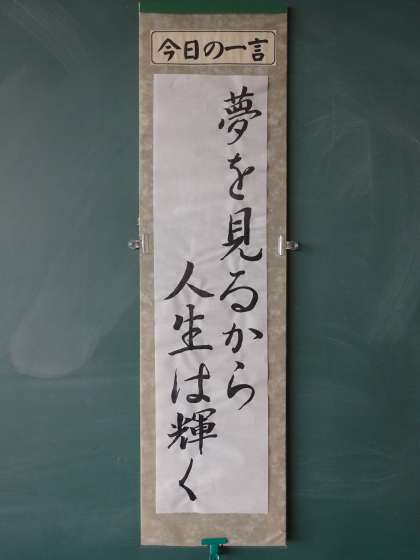 今日の一言
夢を見るから
人生は輝く